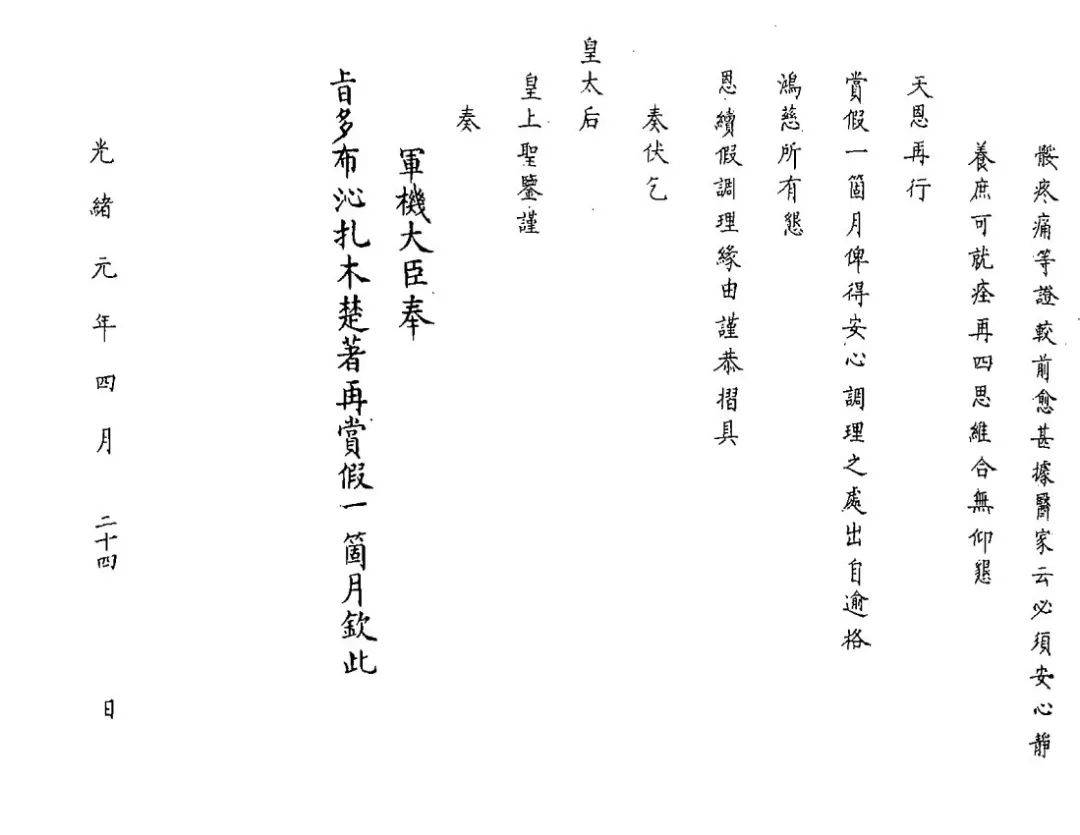 骽疼痛等證較前愈甚據醫家云必須安心靜
養庶可就痊再四思維合無仰懇
天恩再行
賞假一箇月俾得安心調理之處出自逾格
鴻慈所有懇
恩續假調理緣由謹恭摺具
奏伏乞
皇太后
皇上聖鑒謹
奏
軍機大臣奉
旨多布沁扎木楚著再賞假一箇月欽此
光緒元年四月二十四日